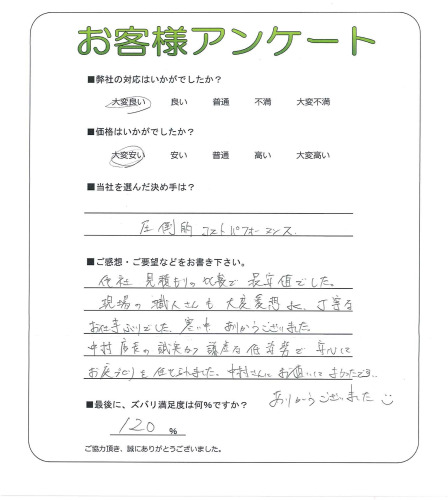 お客様アンケート
■弊社の対応はいかがでしたか?
大変良い 良い 普通 不満 大変不満
■価格はいかがでしたか?
大変安い 安い 普通 高い 大変高い
■当社を選んだ決め手は?
圧倒的コストパフォーマンス.
■ご感想・ご要望などをお書き下さい。
他社見積もりの比較で最安値でした。
現場の職人さんも大変愛想よく、丁寧な
お仕事ぶりでした。寒い中ありがうございました。
中村店長の誠実かつ謙虚な低姿勢で安心して
お庭づくりを任せられました。中村さんにお願いしてよかったです。
ありがうございました
■最後に、ズバリ満足度は何%ですか?
120 %
ご協力頂き、誠にありがとうございました。